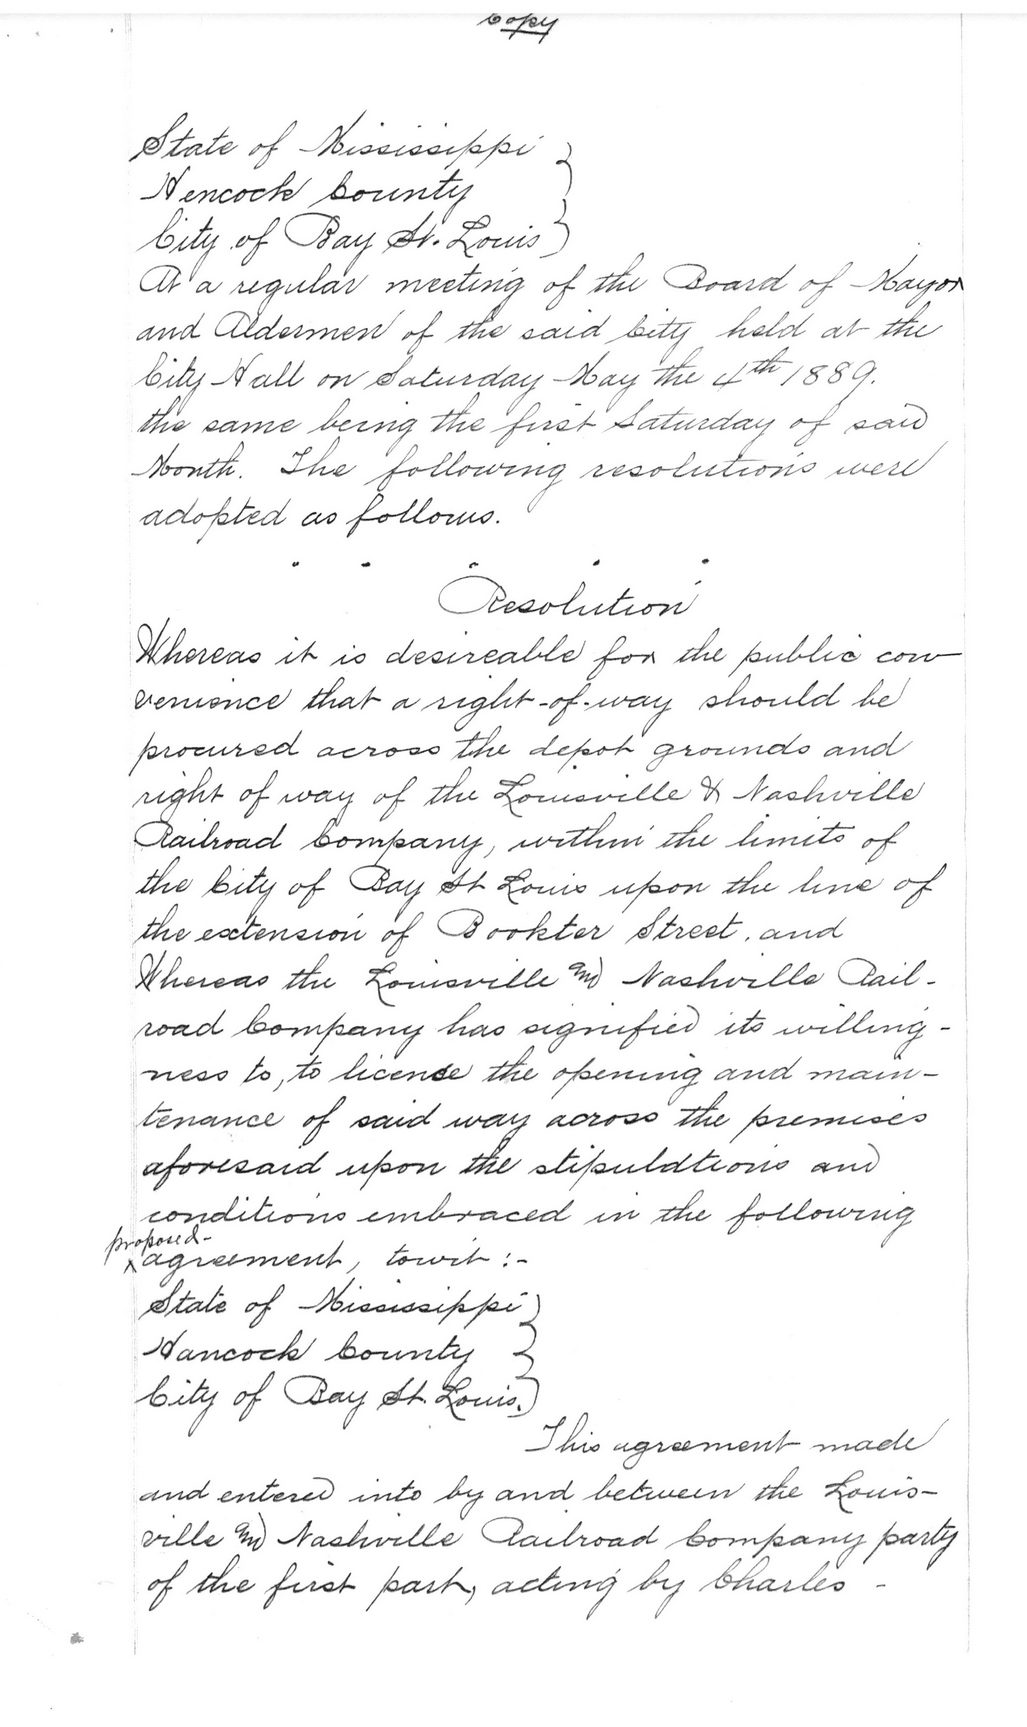 Copy
State of Mississippi
Hencock County
City of Bay St. Louis
At a regular meeting of the Board of Mayor
and Aldermen of the said City held at the
City Hall on Saturday May the 4th 1889.
the same being the first Saturday of said
Month. The following resolutions were
adopted as follows.
Resolution
Whereas it is desireable for the public con
venience that a right-of-way should be
procured across the depot grounds and
right of way of the Louisville & Nashville
Railroad Company, within the limits of
the City of Bay St Louis upon the line of
the extension of Bookter Street, and
Whereas the Louisville and Nashville Rail-
road Company has signified its willing-
ness to, to license the opening and main-
tenance of said way across the premises
aforesaid upon the stipulations and
conditions embraced in the following
proposed-
agreement, towit:-
State of Mississippi
Hancock County
City of Bay St. Louis.
This agreement made
and entered into by and between the Louis-
ville and Nashville Railroad Company party
of the first part, acting by Charles -